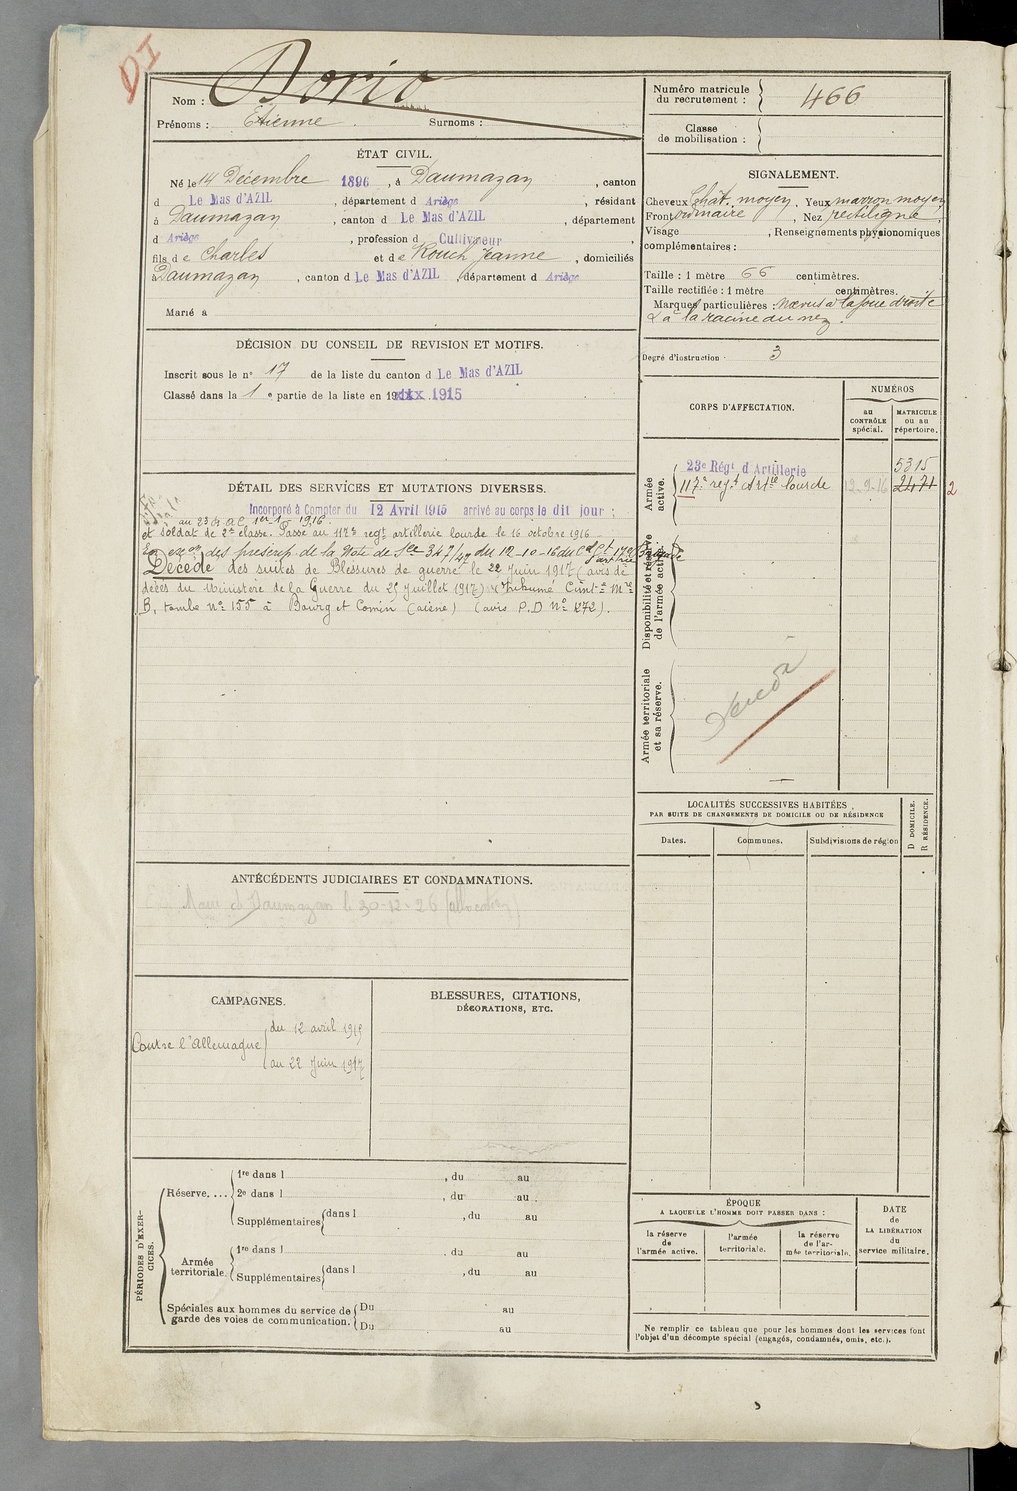 DI
Nom : Dorio
Prénoms : Etienne. Surnoms :
Numéro matricule du recrutement : 466
Classe de mobilisation :
ÉTAT CIVIL.
Né le 14 Décembre 1896, à Daumazan, canton
d Le Mas d'AZIL, département d Ariège, résidant
à Daumazan, canton d Le Mas d'AZIL, département
d Ariège, profession d Cultivateur,
fils de Charles et de Rouch Jeanne, domiciliés
à Daumazan, canton d Le Mas d'AZIL, département d Ariège
Marié à
SIGNALEMENT.
Cheveux Chât. moyen, Yeux marron moyen
Front ordinaire, Nez rectiligne,
Visage , Renseignements physionomiques
complémentaires :
Taille : 1 mètre 66 centimètres.
Taille rectifiée : 1 mètre centimètres.
Marques particulières : Nœvus à la joue droite
& à la racine du nez.
Degré d'instruction : 3
DÉCISION DU CONSEIL DE REVISION ET MOTIFS.
Inscrit sous le n° 17 de la liste du canton d Le Mas d'AZIL
Classé dans la 1 e partie de la liste en 19xxx 1915
CORPS D'AFFECTATION.
NUMÉROS
au CONTRÔLE spécial.
MATRICULE ou au répertoire.
Armée active.
23e Régt d'Artillerie 5315
117e régt Artie lourde 12-9-16 2471 2
Disponibilité et réserve de l'armée active.
Armée territoriale et sa réserve.
décédé
DÉTAIL DES SERVICES ET MUTATIONS DIVERSES.
Incorporé à Compter du 12 Avril 1915 arrivé au corps le dit jour ;
et soldat de 2e classe. Passé au 117e regt artillerie lourde le 16 octobre 1916
En exon des prescrip. de la Note de Sce 347/4 du 12-10-16 du Cdt 17e Brigade
Décédé des suites de Blessures de guerre le 22 Juin 1917 (avis de
décès du Ministère de la Guerre du 25 Juillet 1917). Inhumé Cimt-re Mre
B, tombe N° 155 à Bourg et Comin (aisne) (avis P.D N° 1272).
ANTÉCÉDENTS JUDICIAIRES ET CONDAMNATIONS.
Maire de Daumazan le 30-12-26
CAMPAGNES.
Contre l'Allemagne du 12 avril 1915
au 22 Juin 1917
BLESSURES, CITATIONS,
DÉCORATIONS, ETC.
LOCALITÉS SUCCESSIVES HABITÉES
PAR SUITE DE CHANGEMENTS DE DOMICILE OU DE RÉSIDENCE
Dates. Communes. Subdivisions de région
D DOMICILE.
R RÉSIDENCE.
PÉRIODES D'EXERCICES.
Réserve. ...
1re dans l , du au
2e dans l , du au
Supplémentaires dans l , du au
Armée territoriale.
1re dans l , du au
Supplémentaires dans l , du au
Spéciales aux hommes du service de garde des voies de communication.
Du au
Du au
ÉPOQUE
A LAQUELLE L'HOMME DOIT PASSER DANS :
la réserve de l'armée active.
l'armée territoriale.
la réserve de l'armée territoriale.
DATE de LA LIBÉRATION du service militaire.
Ne remplir ce tableau que pour les hommes dont les services font
l'objet d'un décompte spécial (engagés, condamnés, omis, etc.).